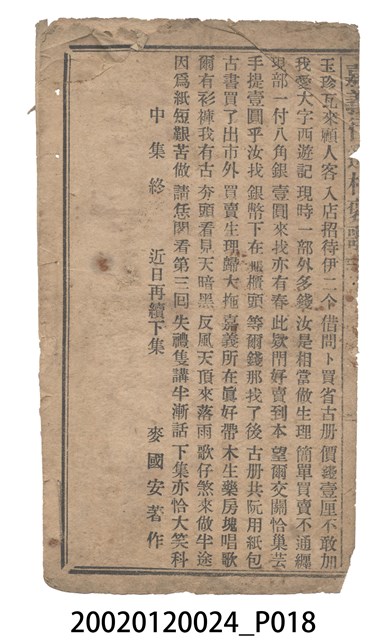 玉珍瓦來顧人客 入店招待伊一个 借問卜買省古册 價錢壹厘不敢加
我愛大字西遊記 現時一部外多錢 汝是相當做生理 簡單買賣不通纏
現部一付八角銀 壹圓來找亦有春 此欵門好賣到本 望爾交關恰巢芸
手提壹圓乎汝找 銀幣下在賬櫃頭 等爾錢那找了後 古册共阮用紙包
古書買了出市外 買賣生理歸大拖 嘉義所在眞好帶 木生藥房塊唱歌
爾有衫褲我有古 夯頭看見天暗黑 反風天頂來落雨 歌仔煞來做半途
因爲紙短艱苦做 請恁閱看第三回 失禮隻講半漸話 下集亦恰大笑科
中集終 近日再續下集 麥國安著作
20020120024_P018